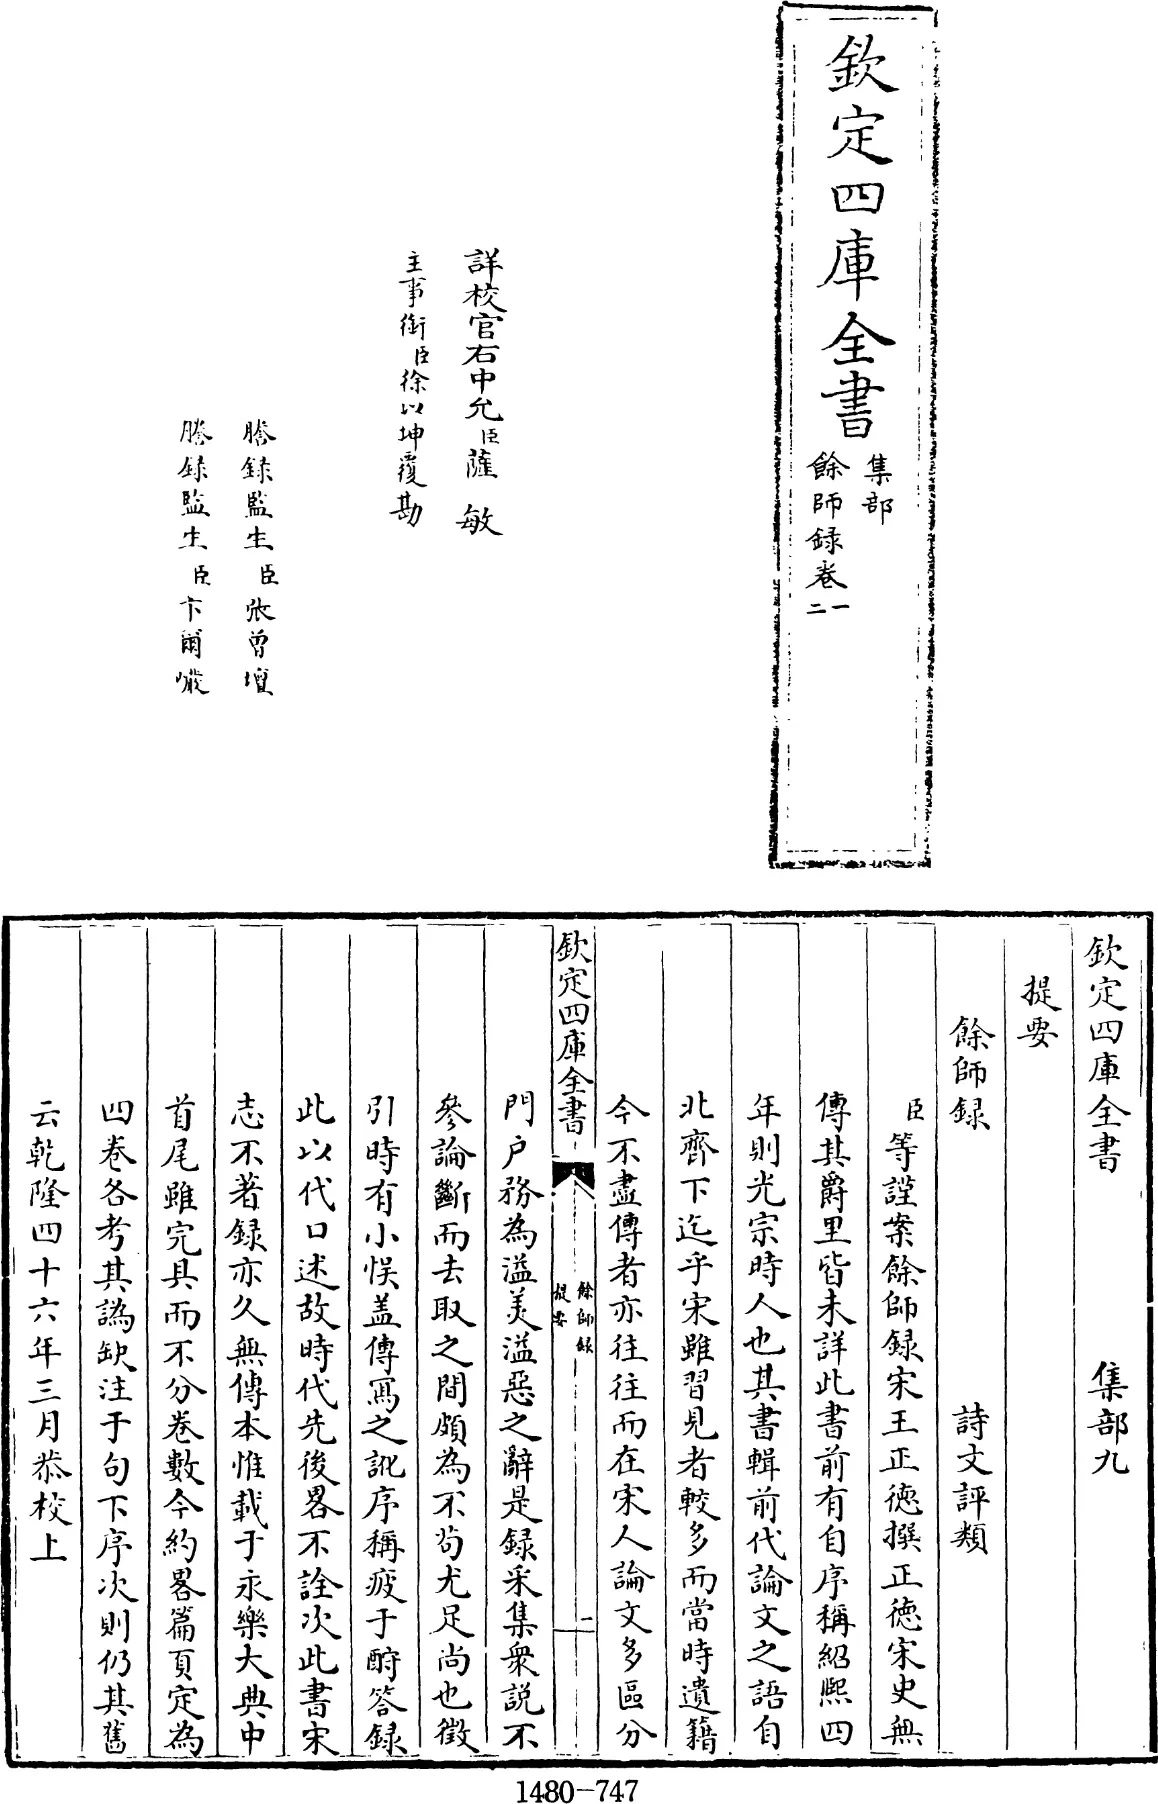 欽定四庫全書
集部
餘師録卷一
二
詳校官右中允臣薩敏
主事銜臣徐以坤覆勘
謄録監生臣張曾壇
謄録監生臣卞爾巘
欽定四庫全書 集部九
提要
餘師録 詩文評類
臣等謹案餘師録宋王正德撰正德宋史無
傳其爵里皆未詳此書前有自序稱紹熙四
年則光宗時人也其書輯前代論文之語自
北齊下迄乎宋雖習見者較多而當時遺籍
今不盡傳者亦往往而在宋人論文多區分
欽定四庫全書
餘師録
提要
一
門户務為溢美溢惡之辭是録采集衆説不
參論斷而去取之間頗為不茍尤足尚也徵
引時有小悮盖傳寫之訛序稱疲于酧答録
此以代口述故時代先後畧不詮次此書宋
志不著録亦久無傳本惟載于永樂大典中
首尾雖完具而不分卷數今約畧篇頁定為
四卷各考其譌缺注于句下序次則仍其舊
云乾隆四十六年三月恭校上
1480-747